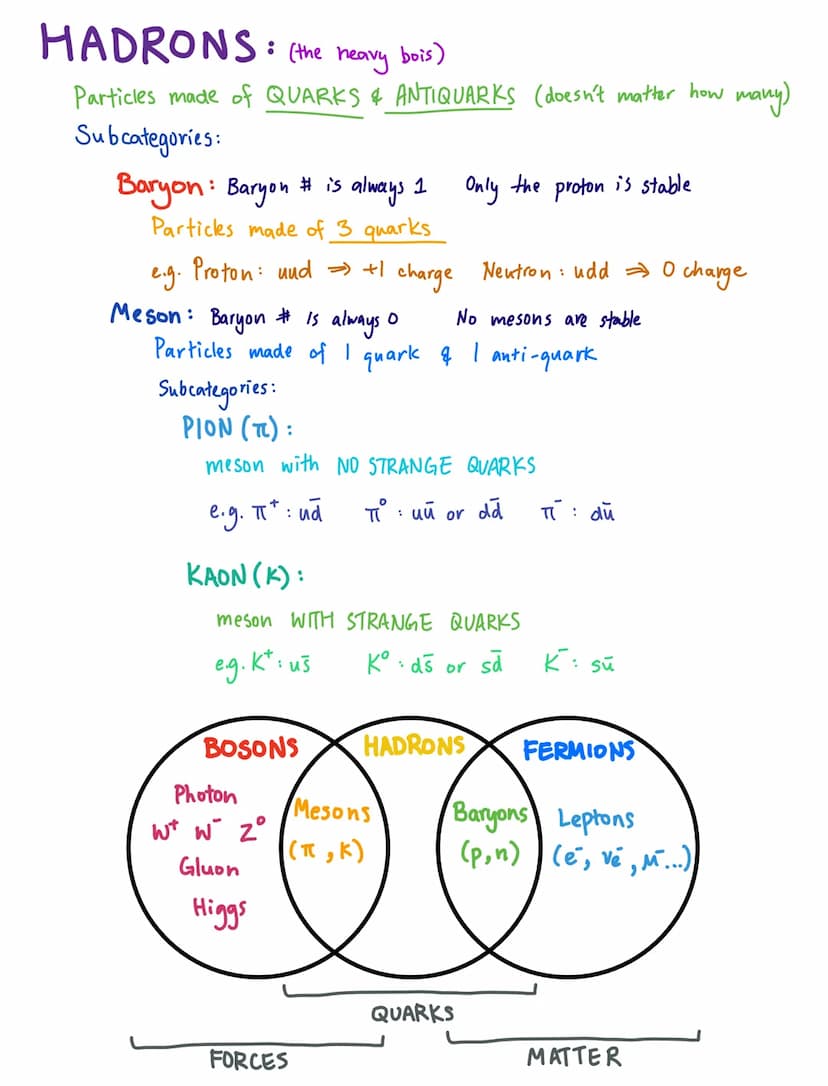 HADRONS: (the heavy bois)
Particles made of QUARKS & ANTIQUARKS (doesn't matter how many)
Subcategories:
Baryon: Baryon # is always 1 Only the proton is stable
Particles made of 3 quarks
e.g. Proton: uud ⇒ +1 charge Neutron: udd ⇒ 0 charge
Meson: Baryon # is always 0 No mesons are stable
Particles made of 1 quark & 1 anti-quark
Subcategories:
PION (π):
meson with NO STRANGE QUARKS
e.g. π⁺: ud̄ π⁰: uū or dd̄ π⁻: dū
KAON (K):
meson WITH STRANGE QUARKS
e.g. K⁺: us̄ K⁰: ds̄ or sd̄ K⁻: sū
BOSONS HADRONS FERMIONS
Photon
W⁺ W⁻ Z⁰
Gluon
Higgs
Mesons
(π, K)
Baryons
(p, n)
Leptons
(e⁻, νe⁻, μ⁻...)
QUARKS
FORCES MATTER